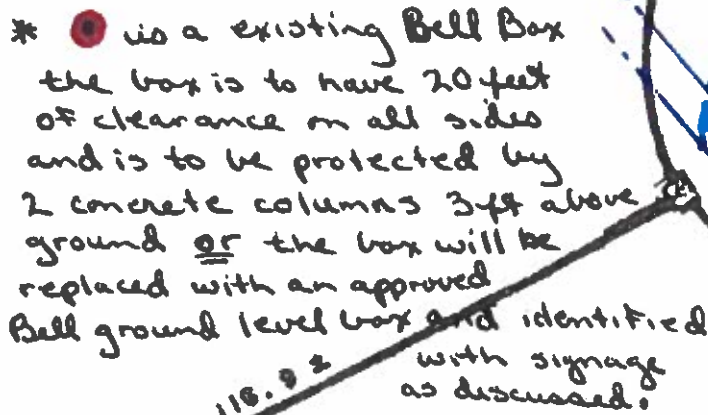 * is a existing Bell Box
the box is to have 20 feet
of clearance on all sides
and is to be protected by
2 concrete columns 3ft above
ground or the box will be
replaced with an approved
Bell ground level box and identified
with signage
as discussed.